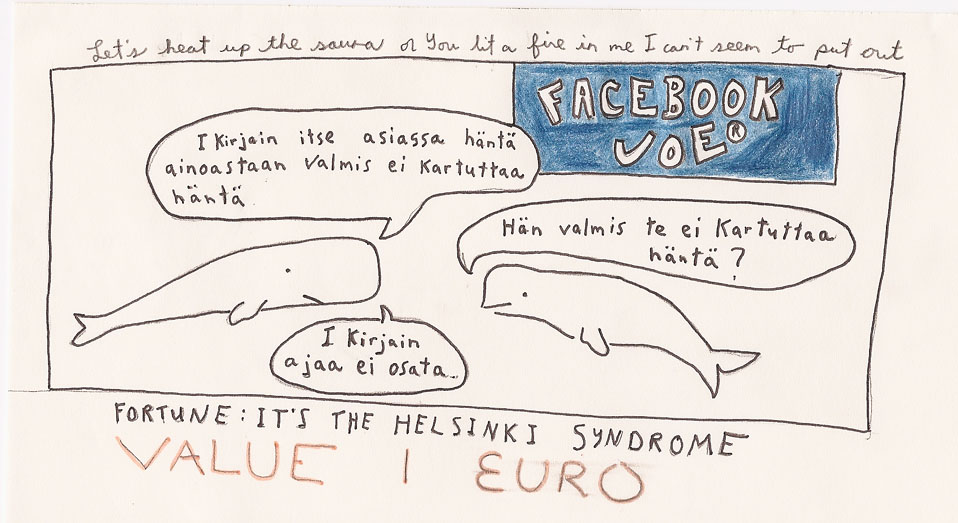 Let's heat up the sauna or You lit a fire in me I can't seem to put out
FACEBOOK
VOE®
I Kirjain itse asiassa häntä
ainoastaan valmis ei Kartuttaa
häntä.
Hän valmis te ei Kartuttaa
häntä?
I Kirjain
ajaa ei osata.
FORTUNE: IT'S THE HELSINKI SYNDROME
VALUE 1 EURO